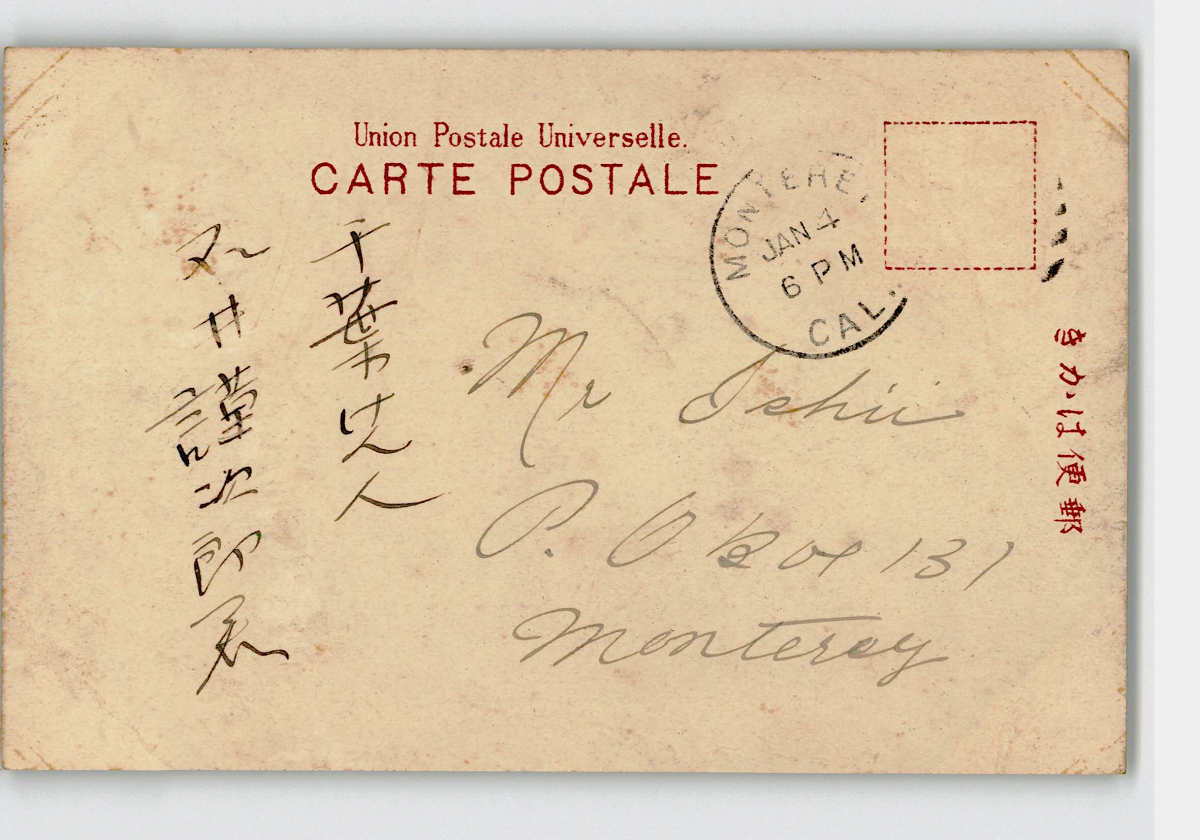 Union Postale Universelle.
CARTE POSTALE
MONTEREY
JAN 4
6 PM
CAL.
きかは便郵
Mr Ishii
P. O Box 131
Monterey
千葉
井謹次郎君